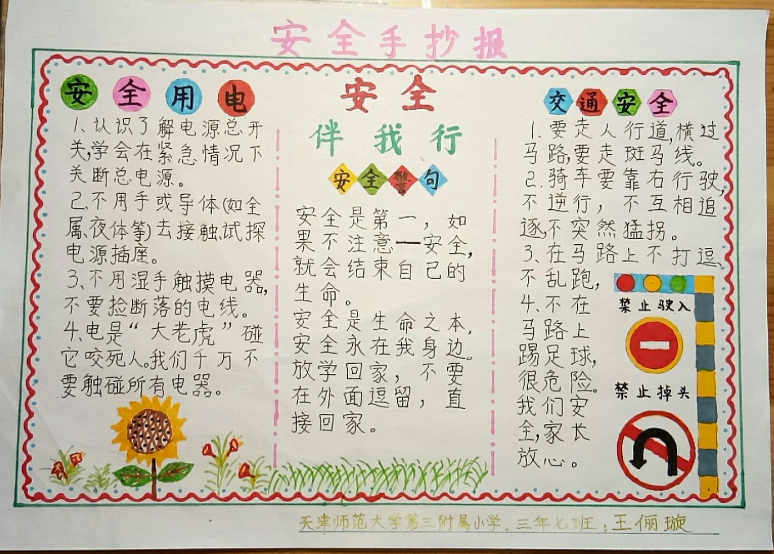 安全手抄报
安全用电
1、认识了解电源总开
关,学会在紧急情况下
关断总电源。
2.不用手或导体(如金
属、夜体等)去接触、试探
电源插座。
3、不用湿手触摸电器,
不要捡断落的电线。
4.电是“大老虎”碰
它咬死人。我们千万不
要触碰所有电器。
安全
伴我行
安全警句
安全是第一，如
果不注意一安全,
就会结束自己的
生命。
安全是生命之本,
安全永在我身边。
放学回家，不要
在外面逗留，直
接回家。
交通安全
1.要走人行道,横过
马路,要走斑马线。
2.骑车要靠右行驶,
不逆行，不互相追
逐,不突然猛拐。
3、在马路上不打逗、
不乱跑,
4.不在
马路上
踢足球,
很危险。
我们安
全,家长
放心。
禁止驶入
禁止掉头
天津师范大学第三附属小学.三年七班:王俪璇